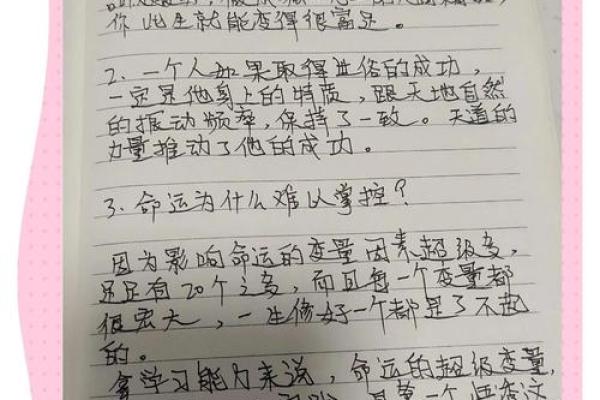 你此生就能变得很富足。
2. 一个人如果取得世俗的成功,
一定是他身上的特质,跟天地自然
的振动频率,保持了一致。天道的
力量推动了他的成功。
3. 命运为什么难以掌控?
因为影响命运的变量因素超级多,
足足有20个之多,而且每一个变量都
很宏大,一生修好一个都是了不起
的。
拿学习能力来说,命运的超级变量,